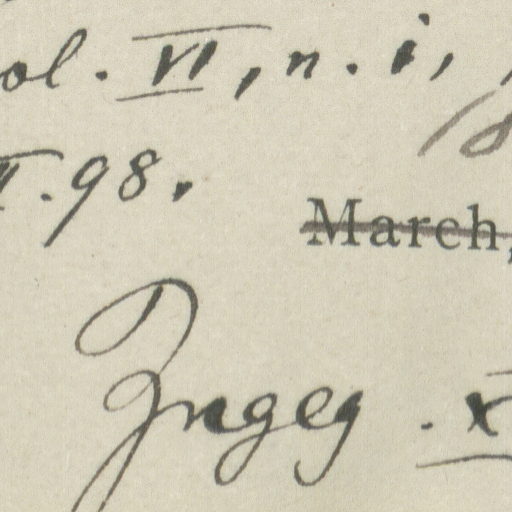 ol. VI, n. i,
. 98.
March,
Zngeg. X